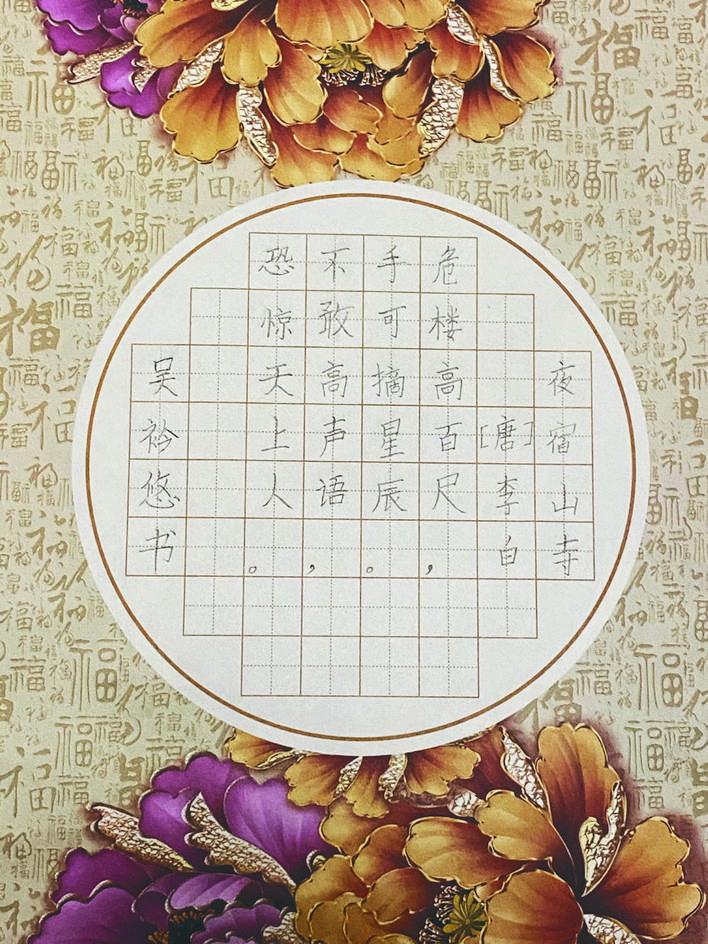 夜宿山寺
[唐]李白
危楼高百尺，
手可摘星辰。
不敢高声语，
恐惊天上人。
吴衿悠书